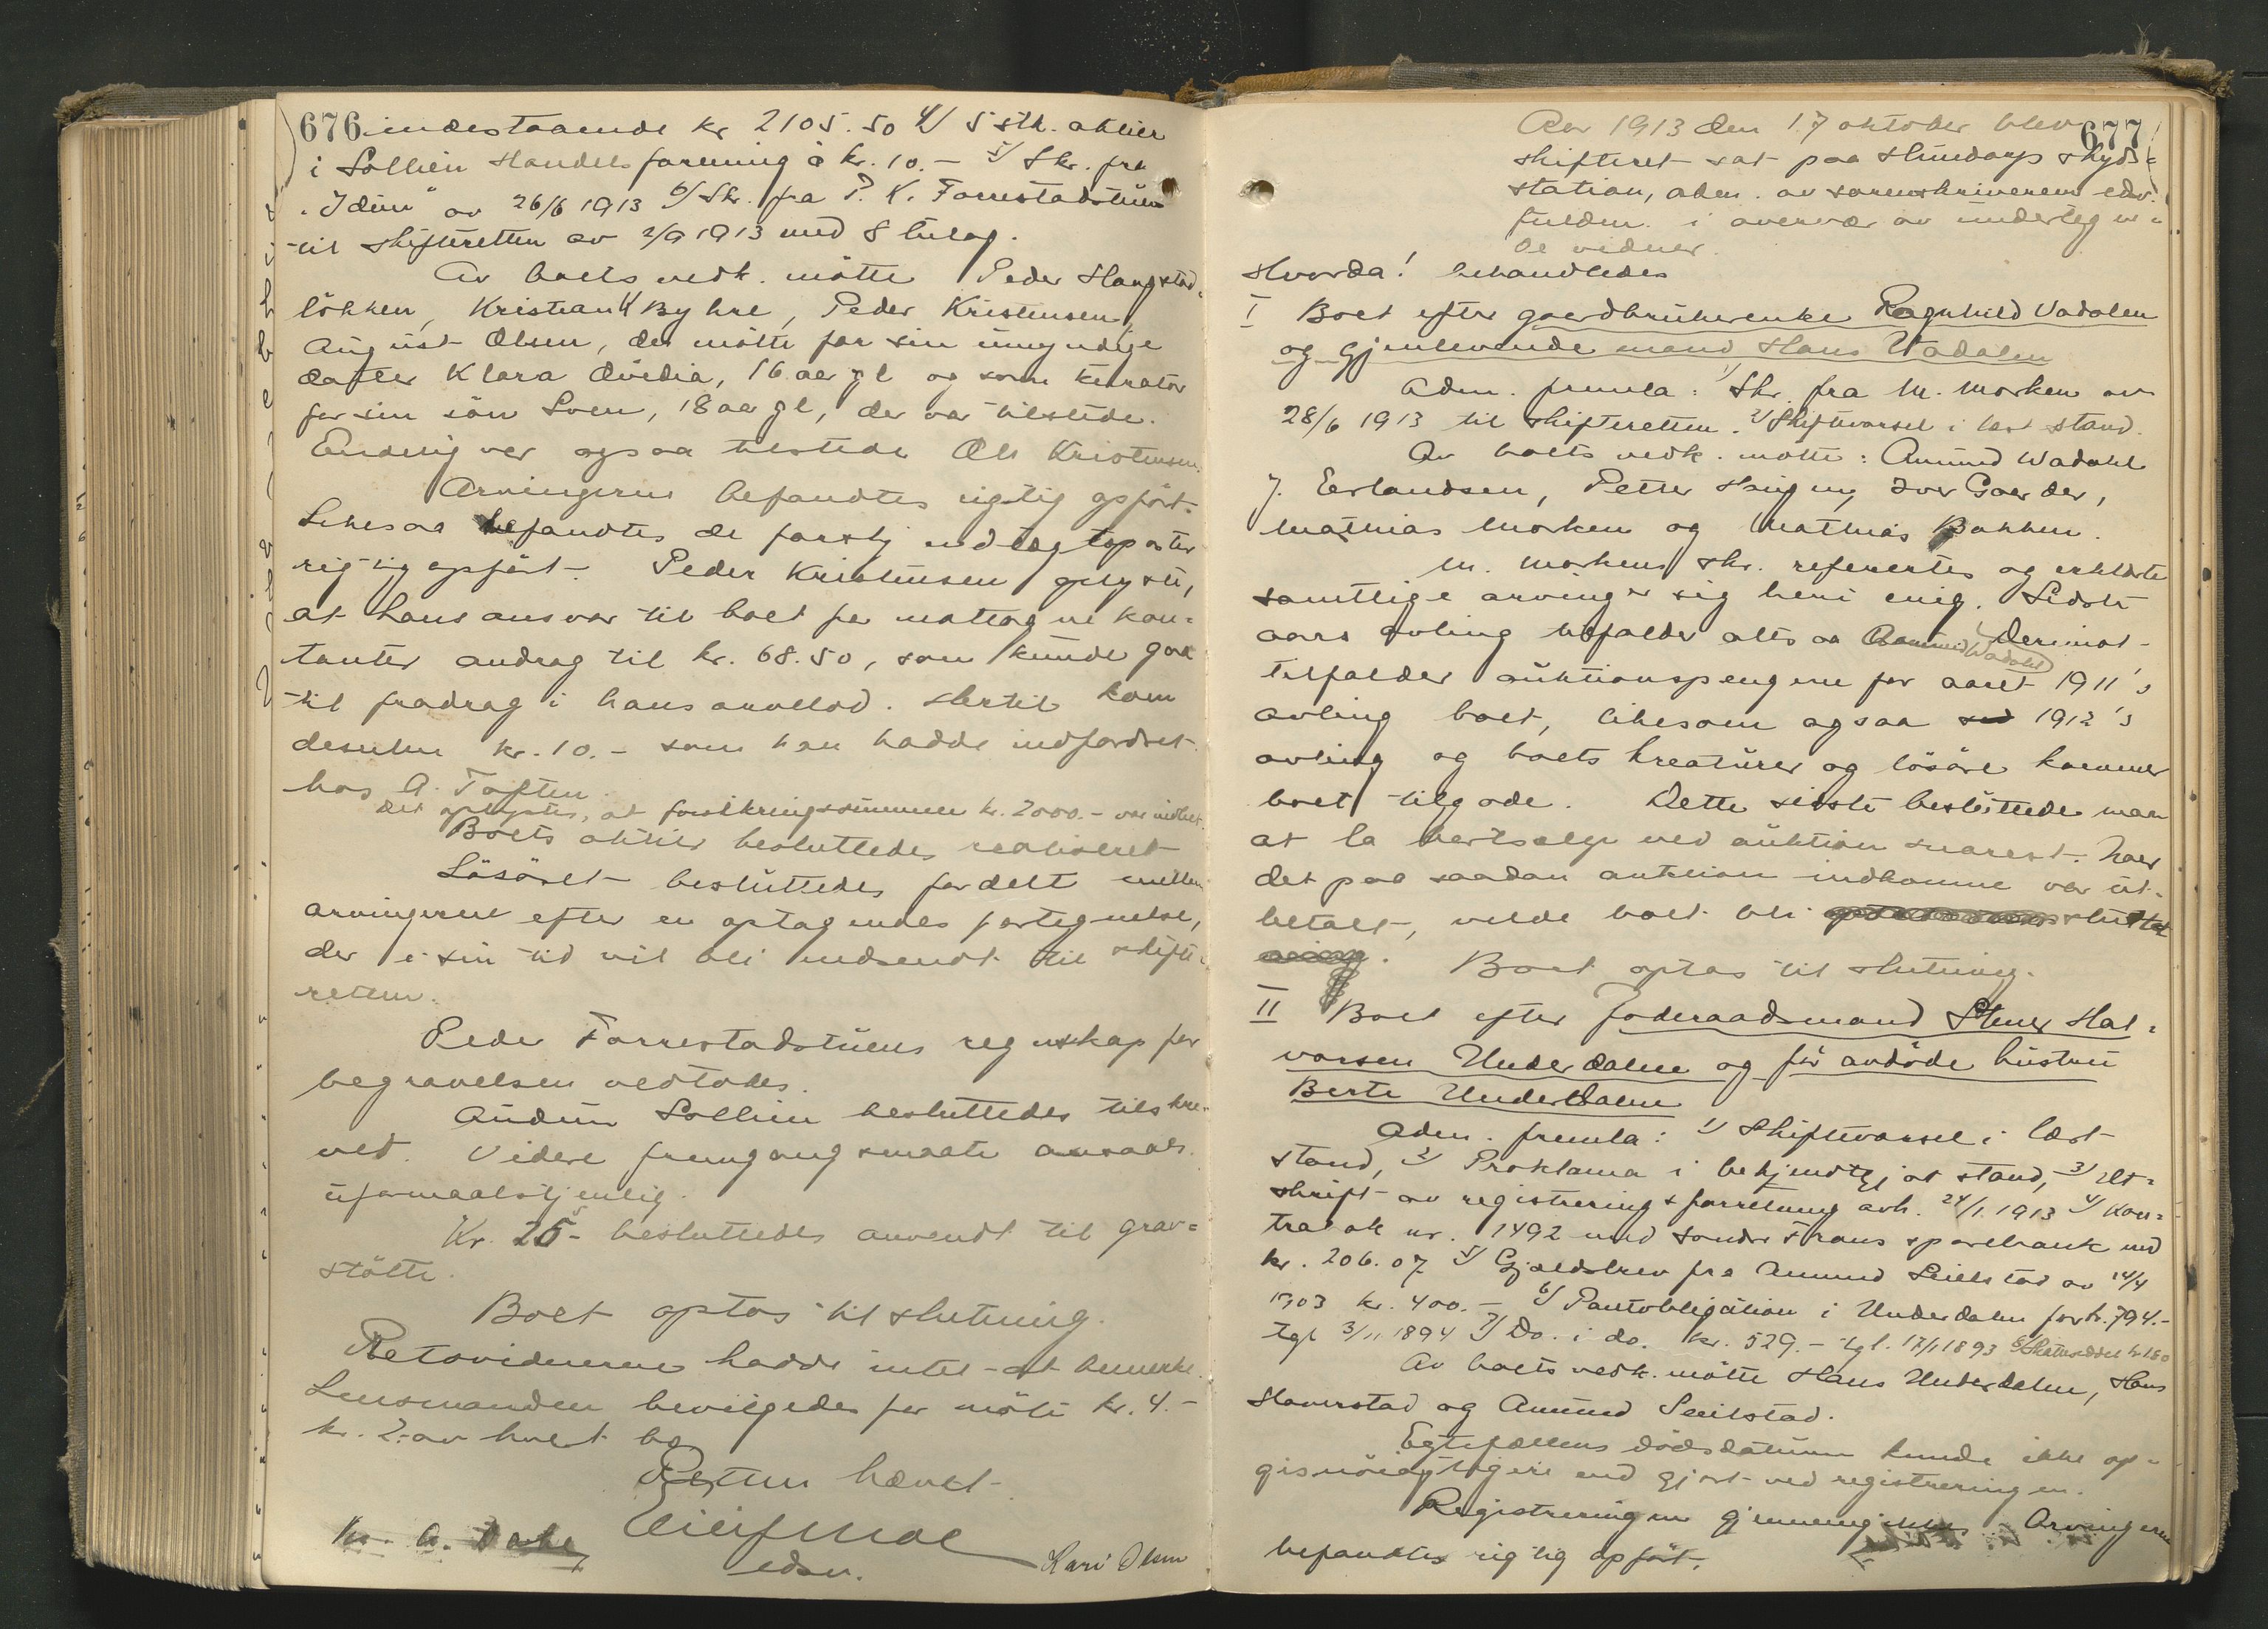 676
indestaaende kr 2105.50 4/ 5 stk. aktier
i Sollien Handelsforening à kr. 10.- 5/ Skr. fra
"Idun" av 26/6 1913 6/ Skr. fra P. K. Forrestadstuen
til skifteretten av 2/9 1913 med 8 bilag.
Av boets vedk. mötte Peder Haugstad-
lökken, Kristian Byhre, Peder Kristensen,
August Olsen, der mötte for sin umyndige
datter Klara Ovidia, 16 aar gl og som kurator
for sin sön Sven, 18 aar gl, der var tilstede.
Endelig var ogsaa tilstede Ole Kristensen.
Arvingerne befandtes rigtig opfört.
Likesaa befandtes de forskj indtægtsposter
rigtig opfört. Peder Kristensen oplyste,
at hans ansvar til boet for mottagne kon=
tanter androg til kr. 68.50, som kunde gaa
til fradrag i hans arvelod. Hertil kom
desuten kr. 10.- som han hadde indfordret
hos A. Toften.
Det oplystes, at forsikringssummen kr. 2000.- var indbet.
Boets aktier besluttedes realiseret
Lösöret besluttedes fordelt mellem
arvingerne efter en optagendes fortegnelse,
der i sin tid vil bli indsendt til skifte-
retten.
Peder Forrestadstuens regnskap for
begravelsen vedtokes.
Audun Sollien besluttedes tilskre-
vet. Videre fremgangsmaate ansaaes
uformaalstjenlig.
Kr. 25.- besluttedes anvendt til grav=
stötte.
Boet optas til slutning.
Retsvidnerne hadde intet at bemerke.
Lensmanden bevilgedes for möte kr. 4.-
kr. 2.- av hvert bo
Retten hævet.
Eilif Moe
edsv.
M. A. Dahl
Kari Olsen
677
Aar 1913 den 17 oktober blev
skifteret sat paa Hundorp skyds=
station, adm. av sorenskriverens edsv.
fuldm. i overvær av undertegne=
de vidner.
Hvorda! behandledes
I Boet efter gaardbrukerenke Ragnhild Vadalen
og gjenlevende mand Hans Wadalen
Adm. fremla: 1/ Skr. fra M. Morken av
28/6 1913 til skifteretten. 2/ Skiftevarsel i læst stand.
Av boets vedk. mötte: Amund Wadahl
J. Erlandsen, Petter Haugen, Iver Gaarder,
Mathias Morken og Mathias Bakken.
M. Morkens skr. refereertes og erklærte
samtlige arvinger sig heri enig. Sidste
aars avling tilfalder altsaa Amund Wadahl. Derimot
tilfalder auktionspengene for aaret 1911's
avling boet, likesom ogsaa 1912's
avling og boets kreaturer og lösöre kommer
boet tilgode. Dette sidste besluttede man
at la bortsælge ved auktion snarest. Naar
det paa saadan auktion indkomne var ut-
betalt, vilde boet bli sluttet
. Boet optas til slutning.
II Boet efter föderaadsmand Stener Hal=
vorsen Underdalen og för avdöde hustru
Berte Underdalen
Adm. fremla: 1/ Skiftevarsel i læst
stand, 2/ Proklama i bekjendtgjort stand, 3/ Ut=
skrift av registreringsforretning avh. 24/1. 1913 4/ Kon=
trabok nr. 1492 med Söndre Frons sparebank med
kr. 206.07 5/ Gjældsbrev fra Amund Seielstad av 14/4
1903 kr. 400.- 6/ Pantobligation i Underdalen for kr. 794.-
tgl 3/11 1894 7/ Do. i do. kr. 529.- tgl. 17/1 1893 8/ Skatteseddel kr 1.80
Av boets vedk. mötte Hans Underdalen, Hans
Haverstad og Amund Seielstad.
Egtefællens dödsdatum kunde ikke op-
gis nöiagtigere end gjort ved registreringen.
Registreringen gjennemgikkes. Arvingerne
befandtes rigtig opfört.